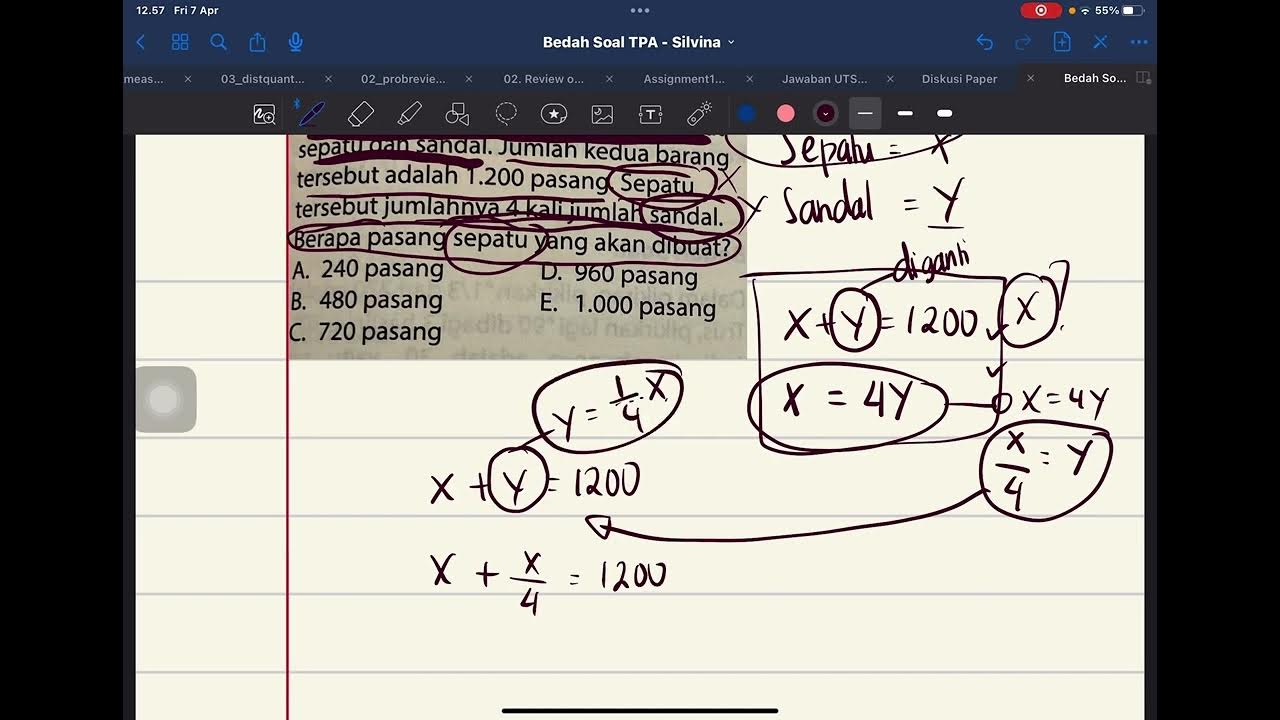 12.57 Fri 7 Apr
55%
Bedah Soal TPA - Silvina
meas...
03_distquant...
02_probrevie...
02. Review o...
Assignment1...
Jawaban UTS...
Diskusi Paper
Bedah So...
sepatu dan sandal. Jumlah kedua barang
tersebut adalah 1.200 pasang. Sepatu
tersebut jumlahnya 4 kali jumlah sandal.
Berapa pasang sepatu yang akan dibuat?
A. 240 pasang
B. 480 pasang
C. 720 pasang
D. 960 pasang
E. 1.000 pasang
X
Y
Sepatu = X
Sandal = Y
diganti
X + Y = 1200
X?
X = 4Y
X = 4Y
X/4 = Y
Y = 1/4 . X
X + Y = 1200
X + X/4 = 1200